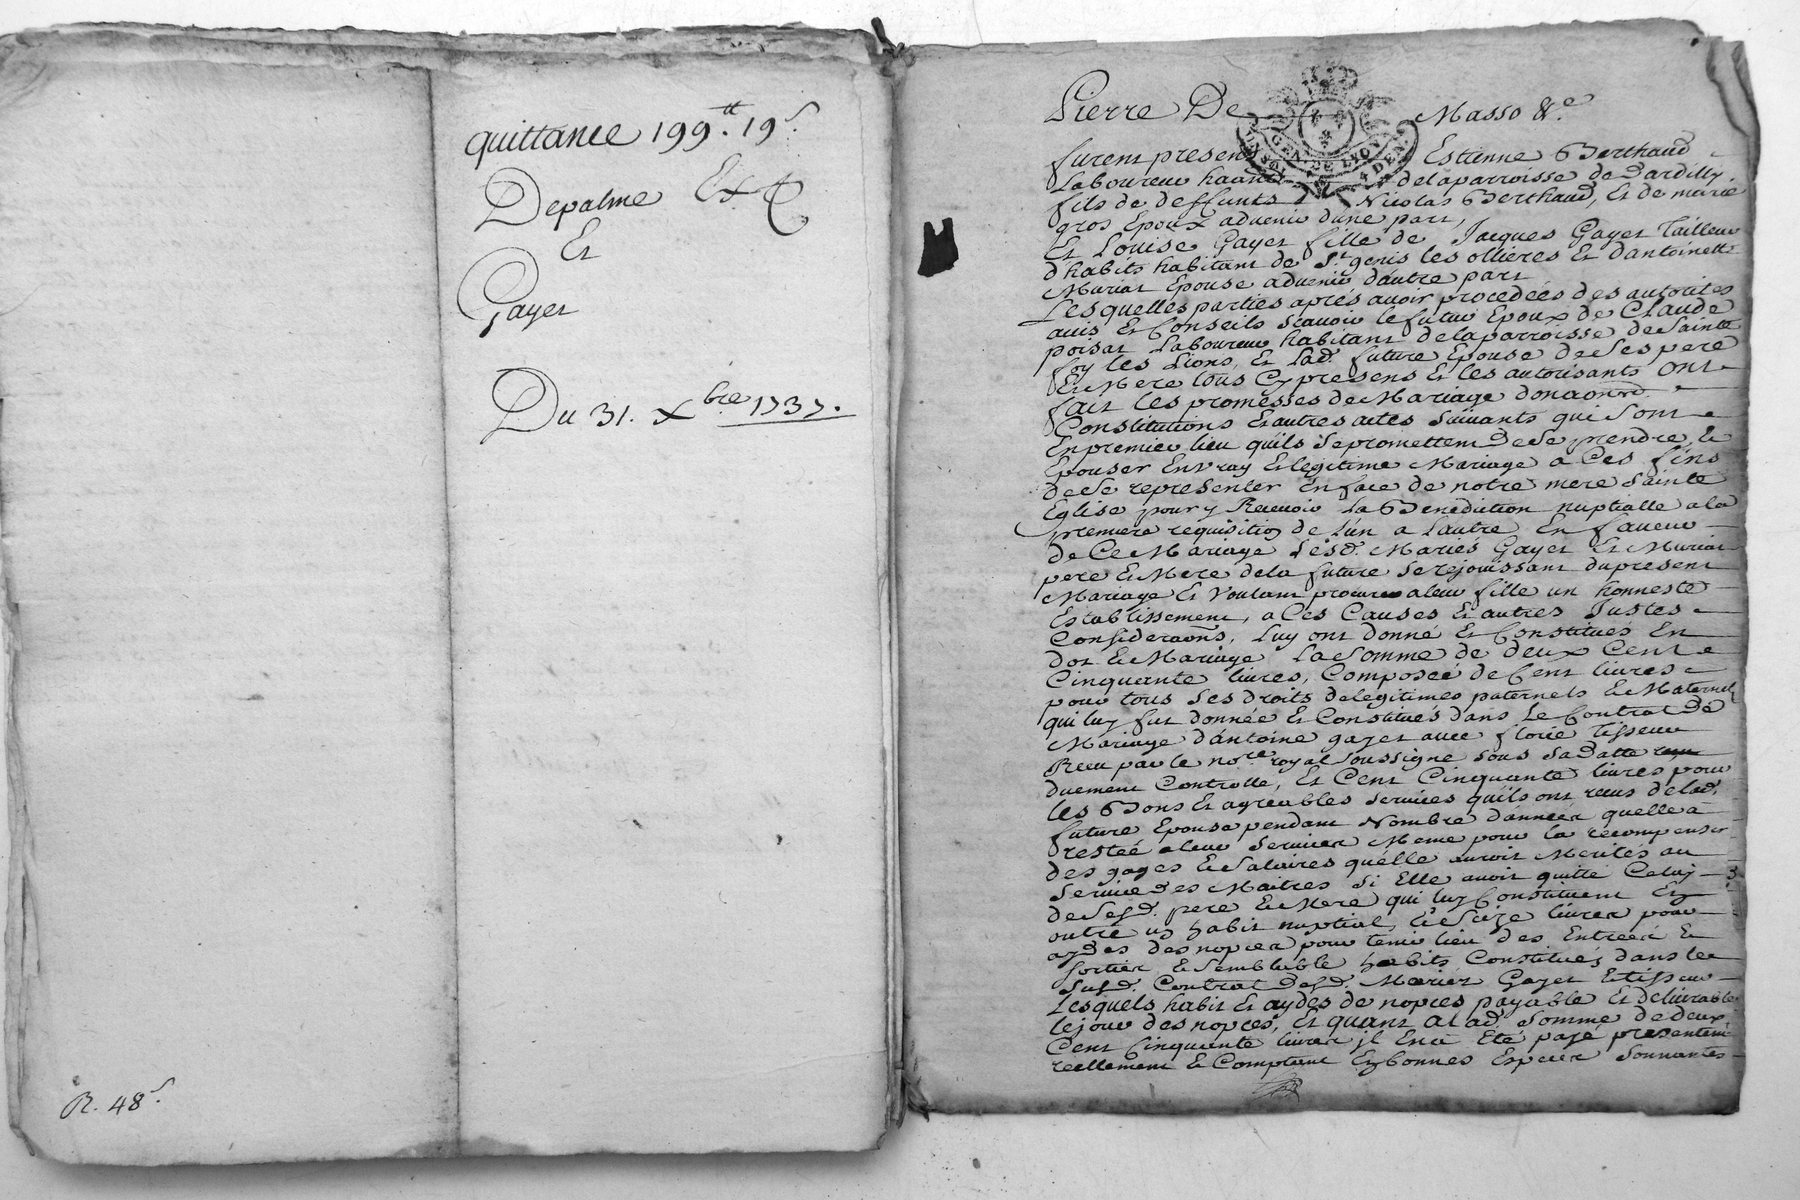 quittance 199.tt 19s.
Depalme Et
Et
Gayet
Du 31. Xbre 1737.
R. 48s.
Pierre De Masso &c
GEN. DE LYON
furent presens Estienne Berthaud
Laboureur habitant de la parroisse de Dardilly
fils de deffunts Nicolas Berthaud, Et de marie
gros Epoux advenir dune part,
Et Louise Gayet fille de Jacques Gayet Tailleur
d'habits habitant de St. genis les ollieres Et dantoinette
Muriat Epouse advenir dautre part
Lesquelles parties aprés avoir procedées des autorités
avis Et Conseils scavoir le futur Epoux de Claude
poisat Laboureur habitant de la parroisse de Sainte
foy les Lions, Et Lad. future Epouse de Ses pere
Et Mere tous Cy presens Et les autorisants ont
fait les promesses de Mariage donaons
Constitutions Et autres actes suivants qui sont
En premier lieu qu'ils se promettent de Se prendre &
Epouser En vray Et legitime Mariage a Ces fins
de Se representer En face de notre mere Sainte
Eglise pour y Recevoir La Benediction nuptialle a la
premiere requisition de L'un a L'autre En faveur
de Ce Mariage Lesd. Mariés Gayet Et Muriat
pere & Mere de la future se rejouissant du present
Mariage Et voulant procurer a leur fille un honneste
Establissement, a Ces Causes Et autres Justes
Consideraons, Luy ont donné Et Constitués En
dot & Mariage La Somme de deux Cent
Cinquante livres, Composée de Cent livres
pour tous ses droits de legitimes paternels & Maternels
qui luy fut donnée Et Constitués dans Le Contrat de
Mariage d'antoine gayet avec florie Tisseur
Receu par le nore royal soussigné sous sa datte
duement Controllé, Et Cent Cinquante livres pour
les Bons Et agreables services qu'ils ont receus de lad.
future Epouse pendant Nombre d'années quelle a
restée a leur service Meme pour la recompenser
des gages & Salaires quélle auroit Merités au
Service des Maitres si Elle avoit quitté Celuy
de Sesd. pere & Mere qui luy Constituent En
outre un habit nuptial, & Seize livres pour
aydes des nopces pour tenir lieu des Entrées &
sorties, & semblable habits Constitués dans le
Susd. Contrat desd. Mariés Gayet Et tisseur
Lesquels habit Et aydes de nopces payable Et delivrable
le jour des nopces, Et quant a Lad. Somme de deux
Cent Cinquante livres jl En a Eté payé presentement
reellement & Comptant En bonnes Especes Sonnantes